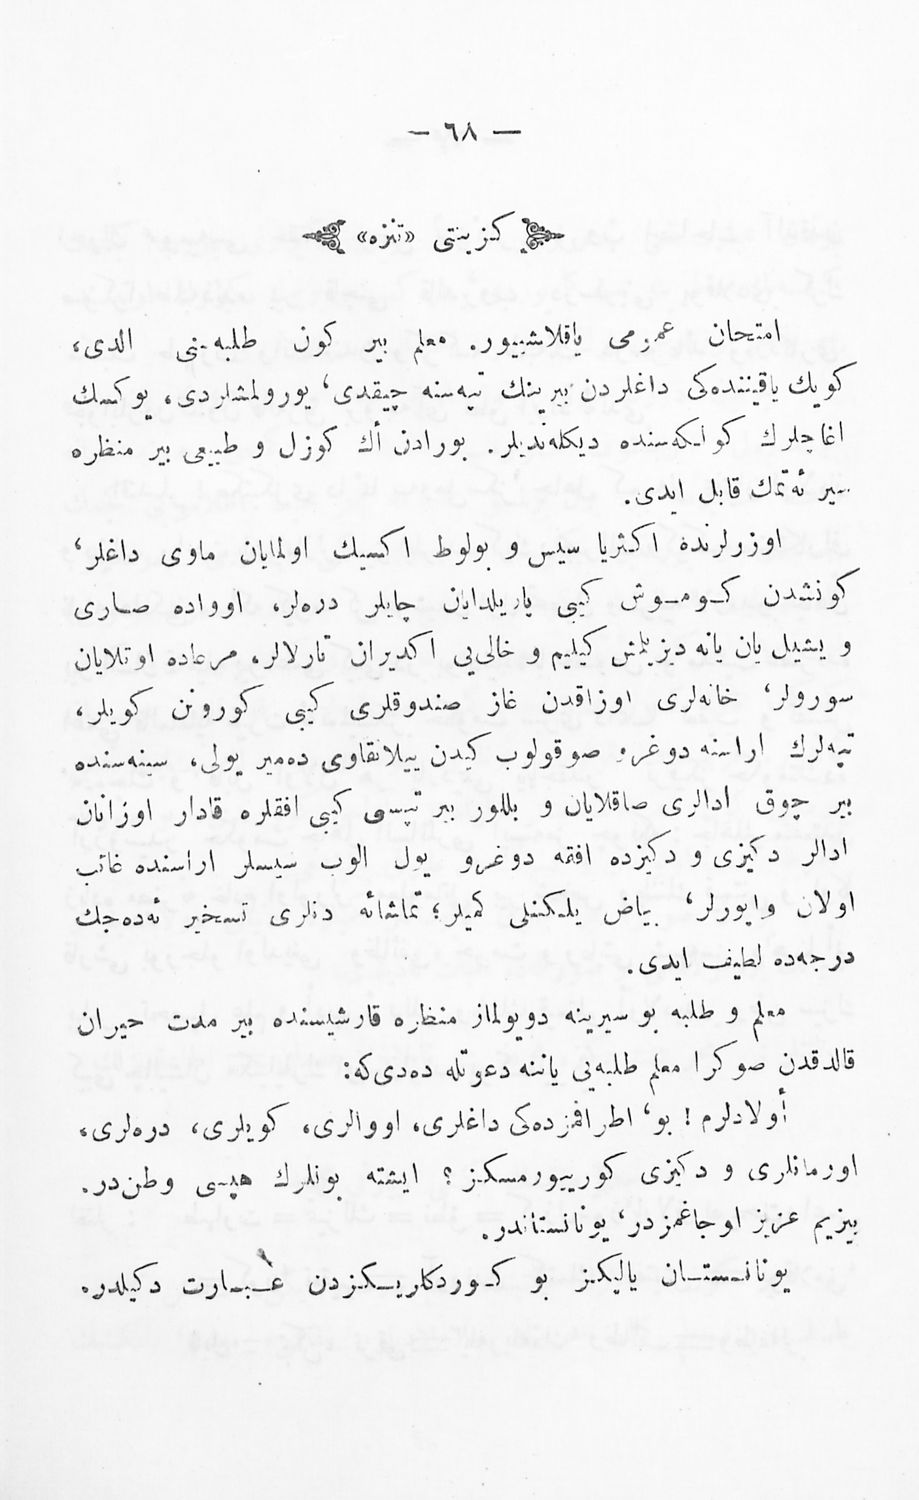 — ٦٨ —
كزينتى «تنزه»
امتحان عمومى ياقلاشييور. معلم بير كون طلبه‌يى الدى،
كويك ياقيننده‌كى داغلردن بيرينك تپه‌سنه چيقدى، يورولمشلردى، يوكسك
اغاچلرك كولكه‌سنده ديكله‌نديلر. بورادن أك كوزل و طبيعى بير منظره
سير ئه‌تمك قابل ايدى.
اوزرلرنده اكثريا سيس و بولوط اكسيك اولمايان ماوى داغلر،
كونشدن كوموش كيبى پاريلدايان چايلر دره‌لر، اوواده صارى
و يشيل يان يانه ديزيلمش كيليم و خالى‌يى اكديران تارلالر، مرعاده اوتلايان
سورولر، خانه‌لرى اوزاقدن غاز صندوقلرى كيبى كورونن كويلر،
تپه‌لرك اراسنه دوغرو صوقولوب كيدن ييلانقاوى ده‌مير يولى، سينه‌سنده
بير چوق ادالرى صاقلايان و بللور بير تپسى كيبى افقلره قادار اوزانان
ادالر دكيزى و دكيزده افقه دوغرو يول الوب سيسلر اراسنده غائب
اولان واپورلر، بياض يلكنلى كميلر؛ تماشائه دنلرى تسخير ئه‌ده‌جك
درجه‌ده لطيف ايدى.
معلم و طلبه بو سيرينه دويولماز منظره قارشيسنده بير مدت حيران
قالدقدن صوكرا معلم طلبه‌يى ياننه دعوتله ده‌دى‌كه:
أولادلرم! بو، اطرافمزده‌كى داغلرى، اووالرى، كويلرى، دره‌لرى،
اورمانلرى و دكيزى كورييورمسكز؟ ايشته بونلرك هپسى وطن‌در.
بيزيم عزيز اوجاغمزدر، يونانستاندر.
يونانستان يالكيز بو كوردكلريكزدن عبارت دكيلدر.